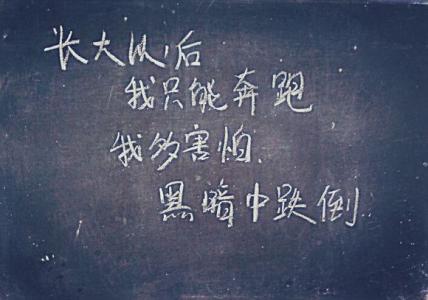 长大以后
我只能奔跑
我多害怕.
黑暗中跌倒